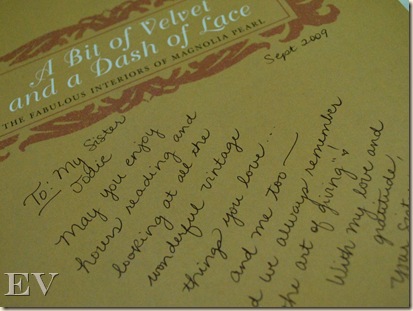 A Bit of Velvet
and a Dash of Lace
THE FABULOUS INTERIORS OF MAGNOLIA PEARL
Sept 2009
To: My Sister
Jodie
May you enjoy
hours reading and
looking at all the
wonderful vintage
things you love...
and me too—
we always remember
the art of giving"!
With my love and
gratitude,
Your
EV